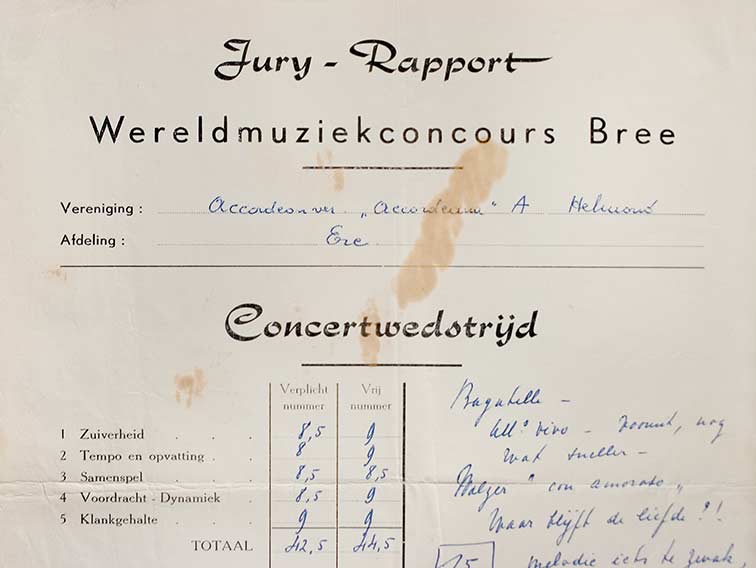 Jury - Rapport
Wereldmuziekconcours Bree
Vereniging : Accordeonver. „Accordeana" A Helmond
Afdeling : Ere
Concertwedstrijd
Verplicht nummer Vrij nummer
1 Zuiverheid . . . 8,5 9
2 Tempo en opvatting . . 8 9
3 Samenspel . . . 8,5 8,5
4 Voordracht - Dynamiek . 8,5 9
5 Klankgehalte . . . 9 9
TOTAAL 42,5 44,5
Bagatelle -
All° vivo - vooruit, nog
wat sneller -
Walzer " con amorato „
Waar blijft de liefde ?!
melodie iets te zwak,